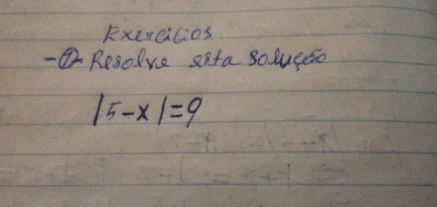 Exercícios
-①- Resolve esta solução
|5-x|=9